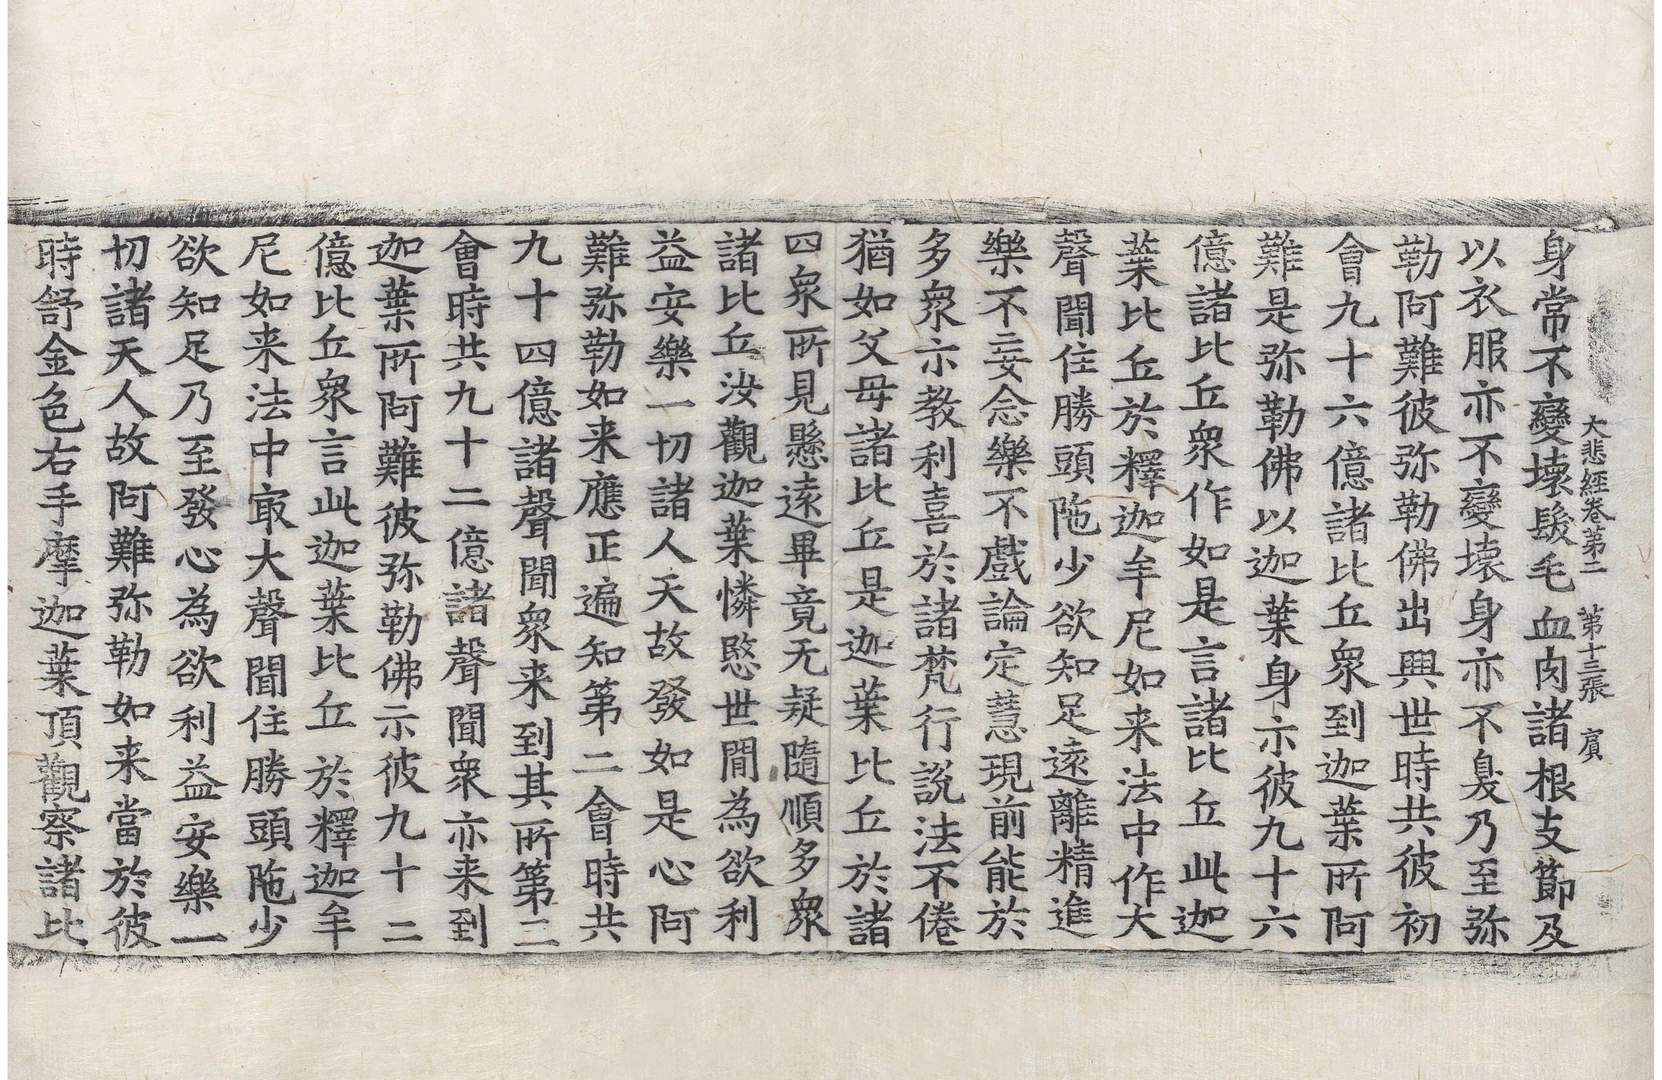 大悲經卷第二 第十三張 賓
身常不變壞髮毛血肉諸根支節及
以衣服亦不變壞身亦不臭乃至弥
勒阿難彼弥勒佛出興世時共彼初
會九十六億諸比丘衆到迦葉所阿
難是弥勒佛以迦葉身示彼九十六
億諸比丘衆作如是言諸比丘此迦
葉比丘於釋迦牟尼如来法中作大
聲聞住勝頭陁少欲知足遠離精進
樂不妄念樂不戲論定慧現前能於
多衆示教利喜於諸梵行說法不倦
猶如父母諸比丘是迦葉比丘於諸
四衆所見懸遠畢竟无疑隨順多衆
諸比丘汝觀迦葉憐愍世間為欲利
益安樂一切諸人天故發如是心阿
難弥勒如来應正遍知第二會時共
九十四億諸聲聞衆来到其所第三
會時共九十二億諸聲聞衆亦来到
迦葉所阿難彼弥勒佛示彼九十二
億比丘衆言此迦葉比丘於釋迦牟
尼如来法中冣大聲聞住勝頭陁少
欲知足乃至發心為欲利益安樂一
切諸天人故阿難弥勒如来當於彼
時舒金色右手摩迦葉頂觀察諸比